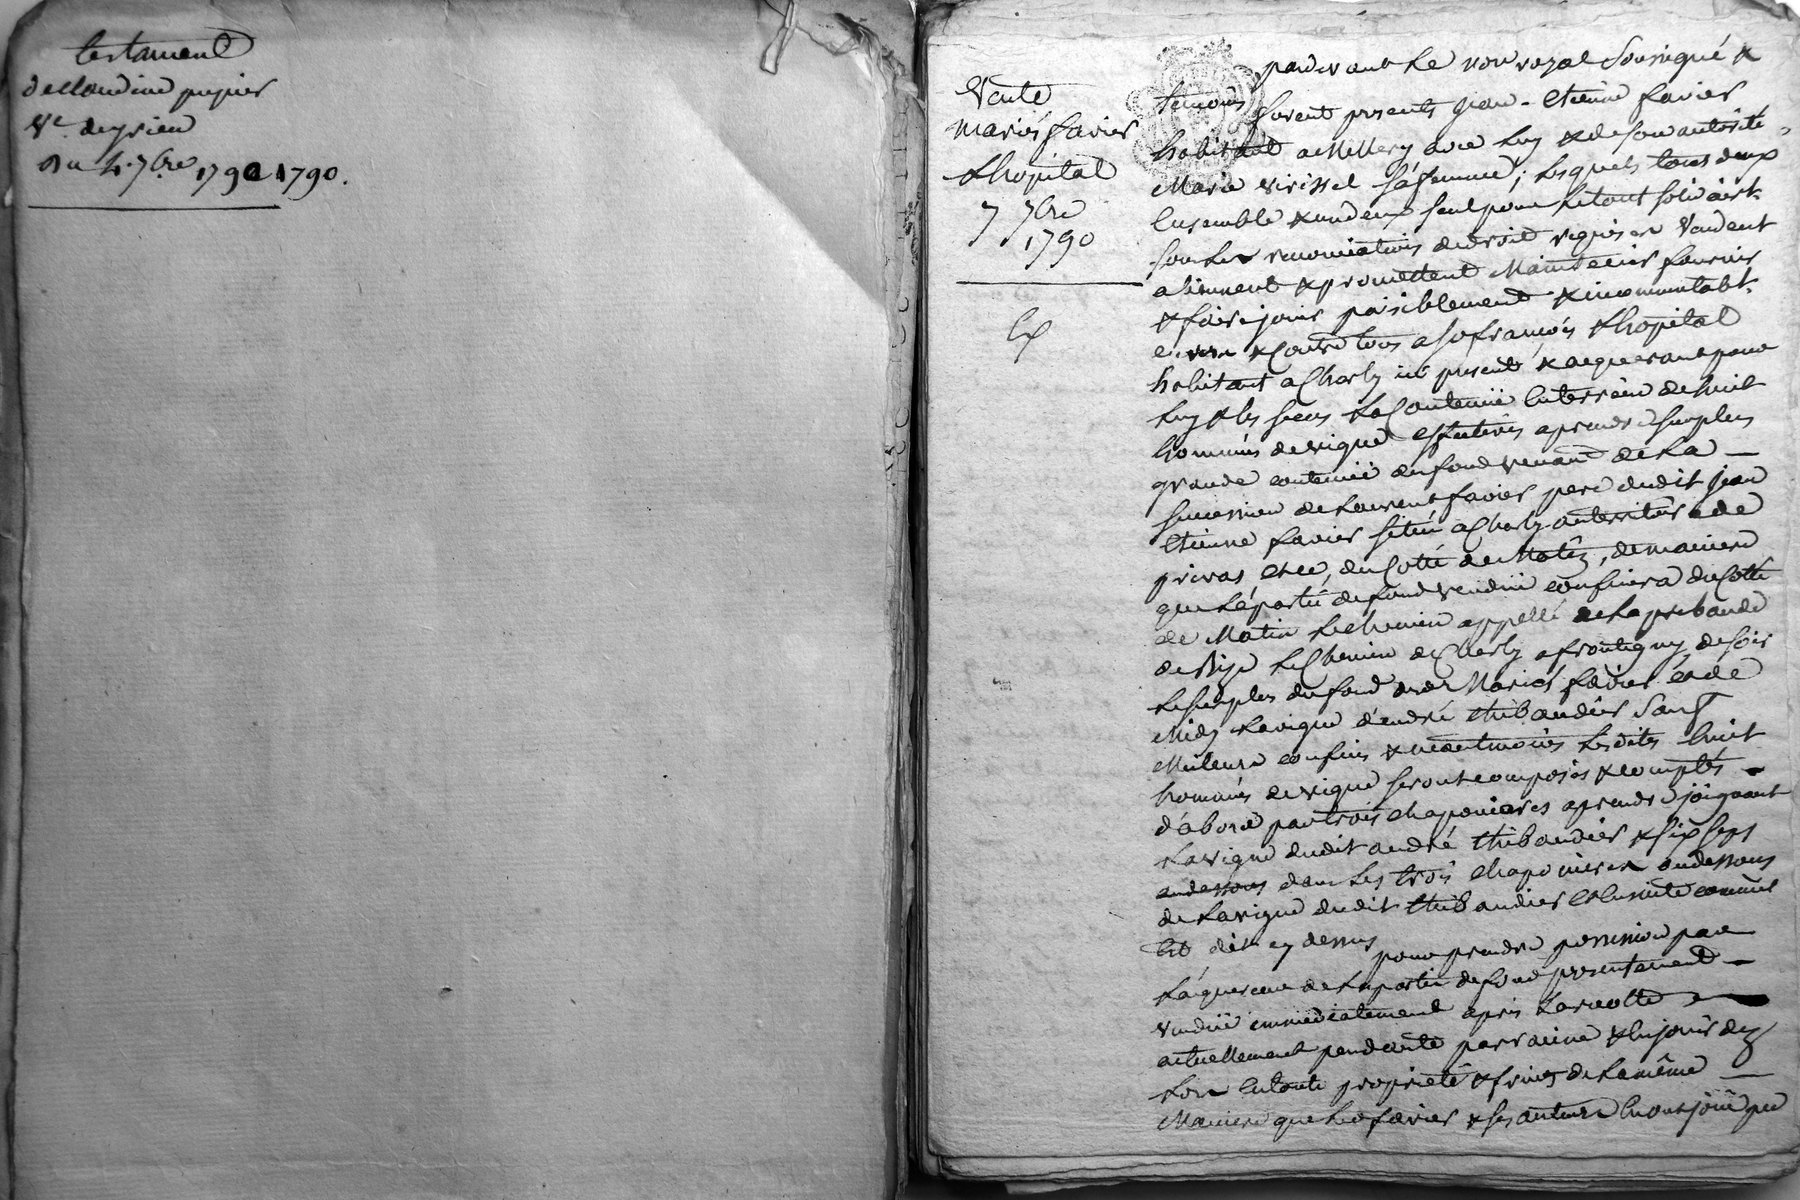 testament
de claudine pupier
Ve. deyrieu
du 4. 7bre 1790 1790.
Vente
Mariés favier
& hopital
7 7bre
1790
pardevant Le nore royal Soussigné &
temoins furent presents jean-Etienne favier
habitant a Millery avec luy & de son autorité
Marie virissel sa femme, lesquels tous deux
Ensemble & un deux seul pour le tout solidairt.
sous les renonciations de droit requises Vendent
alienent & promettent Maintenir fournir
& faire jouir paisiblement & incommutablt.
envers & Contre tous a françois & hopital
habitant a Charly ici present & acquerant pour
luy & les siens La Contenüe Enterrein de huit
hommés de vigne Effectives a prendre sur plus
grande contenüe du fond venant de La
succession de Laurent favier pere dudit jean
Etienne favier situé a Charly au territoire de
privas et ce, du Cotté de Matin, de maniere
que la partie de fond vendüe confinera du Cotté
de Matin Le chemin appellé de La prebande
de Bise Le Chemin de Charly a frontigny, de soir
Le surplus du fond desd. Mariés favier et de
Midy La vigne d'andré thibaudier Sauf
Meilleurs confins & neantmoins Lesdites huit
hommés de vigne seront composées & comptés
d'abord par trois chaponieres a prendre joignant
La vigne dudit andré thibaudier & six seps
au dessous dans Les trois chaponieres au dessous
de La vigne dudit thibaudier Ensuite comme
Est dit cy dessus pour prendre possession par
L'aquereur de La partie de fond presentement
vendüe immediatement apres La recolte
actuellement pendante par racine & En jouir dez
Lors En toute propriété & fruits de La même
Maniere que Led. favier & ses auteurs En ont joüi pu